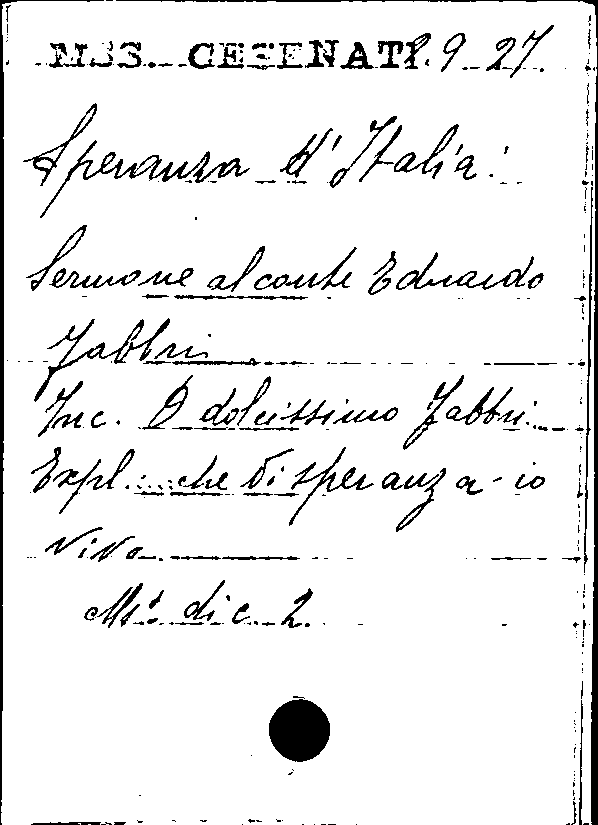 MSS. CESENATI. 9 27.
Speranza d'Italia:
Sermone al conte Eduardo
Fabbri
Inc. O dolcissimo Fabbri
Expl. ... che di speranza io
vivo.
Ms. di c. 2.